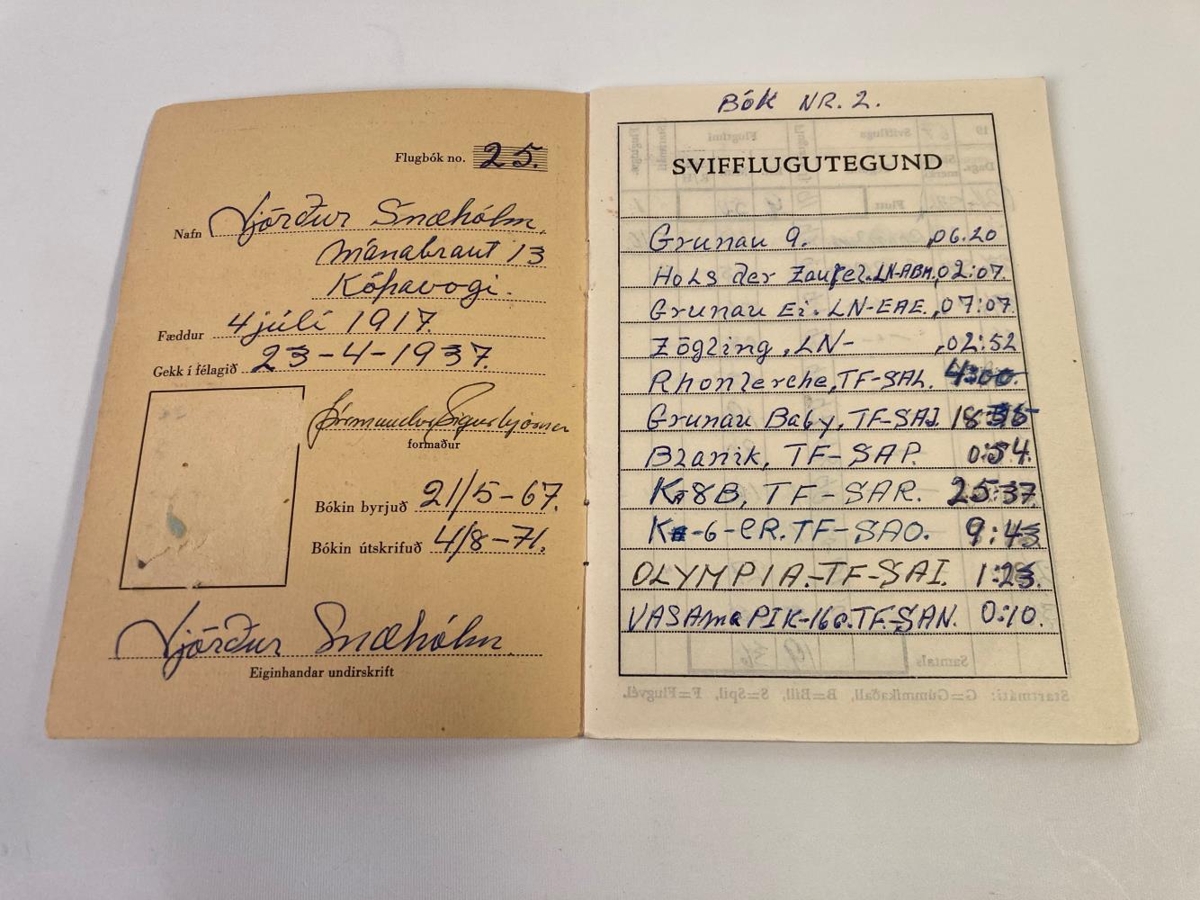 Flugbók no. 25.
Nafn Njörður Snæhólm.
Mánabraut 13
Kópavogi.
Fæddur 4 júlí 1917.
Gekk í félagið 23-4-1937.
formaður
Bókin byrjuð 21/5-67.
Bókin útskrifuð 4/8-71.
Njörður Snæhólm.
Eiginhandar undirskrift
BÓK NR. 2.
SVIFFLUGUTEGUND
Grunau 9. ,06.20
Hols der Zaufel.LN-ABM,02:07.
Grunau Ei. LN-EAE.,07:07.
Zögling,LN- ,02:52
Rhonlerche,TF-SAL. 4:00.
Grunau Baby, TF-SAJ. 18:
Blanik, TF-SAP. 0:54.
K 8B, TF-SAR. 25:37.
K -6-CR.TF-SAO. 9:43.
OLYMPIA.-TF-SAI. 1:23.
VASAma PIK-16c.TF-SAN. 0:10.
Samtals
Startmáti: G=Gúmmíkaðall, B=Bíll, S=Spil, F=Flugvél.